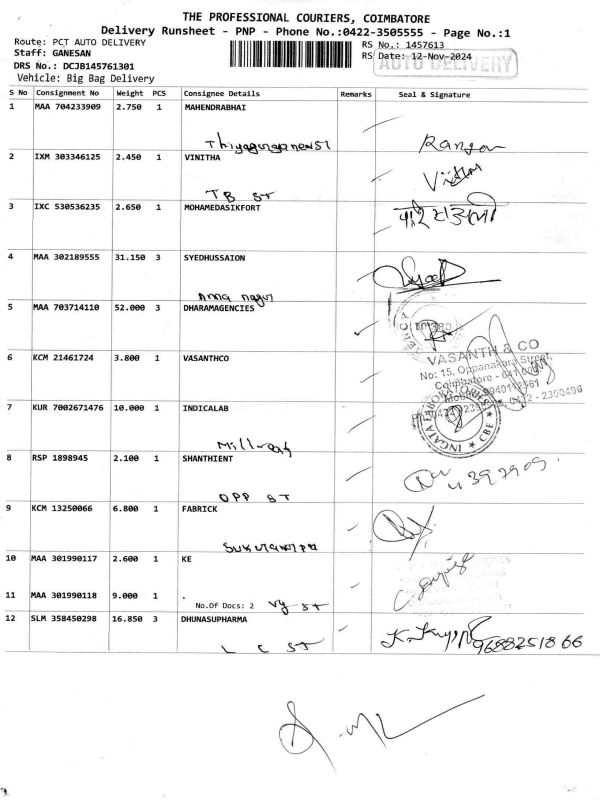 THE PROFESSIONAL COURIERS, COIMBATORE
Delivery Runsheet - PNP - Phone No.:0422-3505555 - Page No.:1
Route: PCT AUTO DELIVERY
Staff: GANESAN
DRS No.: DCJB145761301
Vehicle: Big Bag Delivery
RS No.: 1457613
RS Date: 12-Nov-2024
AUTO DELIVERY
S No Consignment No Weight PCS Consignee Details Remarks Seal & Signature
1 MAA 704233909 2.750 1 MAHENDRABHAI
2 IXM 303346125 2.450 1 VINITHA
TB ST
3 IXC 530536235 2.650 1 MOHAMEDASIKFORT
4 MAA 302189555 31.150 3 SYEDHUSSAION
Anna nagar
5 MAA 703714110 52.000 3 DHARAMAGENCIES
6 KCM 21461724 3.800 1 VASANTHCO
VASANTH & CO
No: 15, Oppanakara Street,
7 KUR 7002671476 10.000 1 INDICALAB
Mill road
8 RSP 1898945 2.100 1 SHANTHIENT
OPP ST
9 KCM 13250066 6.800 1 FABRICK
10 MAA 301990117 2.600 1 KE
11 MAA 301990118 9.000 1 .
No.Of Docs: 2 Vy ST
12 SLM 358450298 16.850 3 DHUNASUPHARMA
L C ST
9688251866